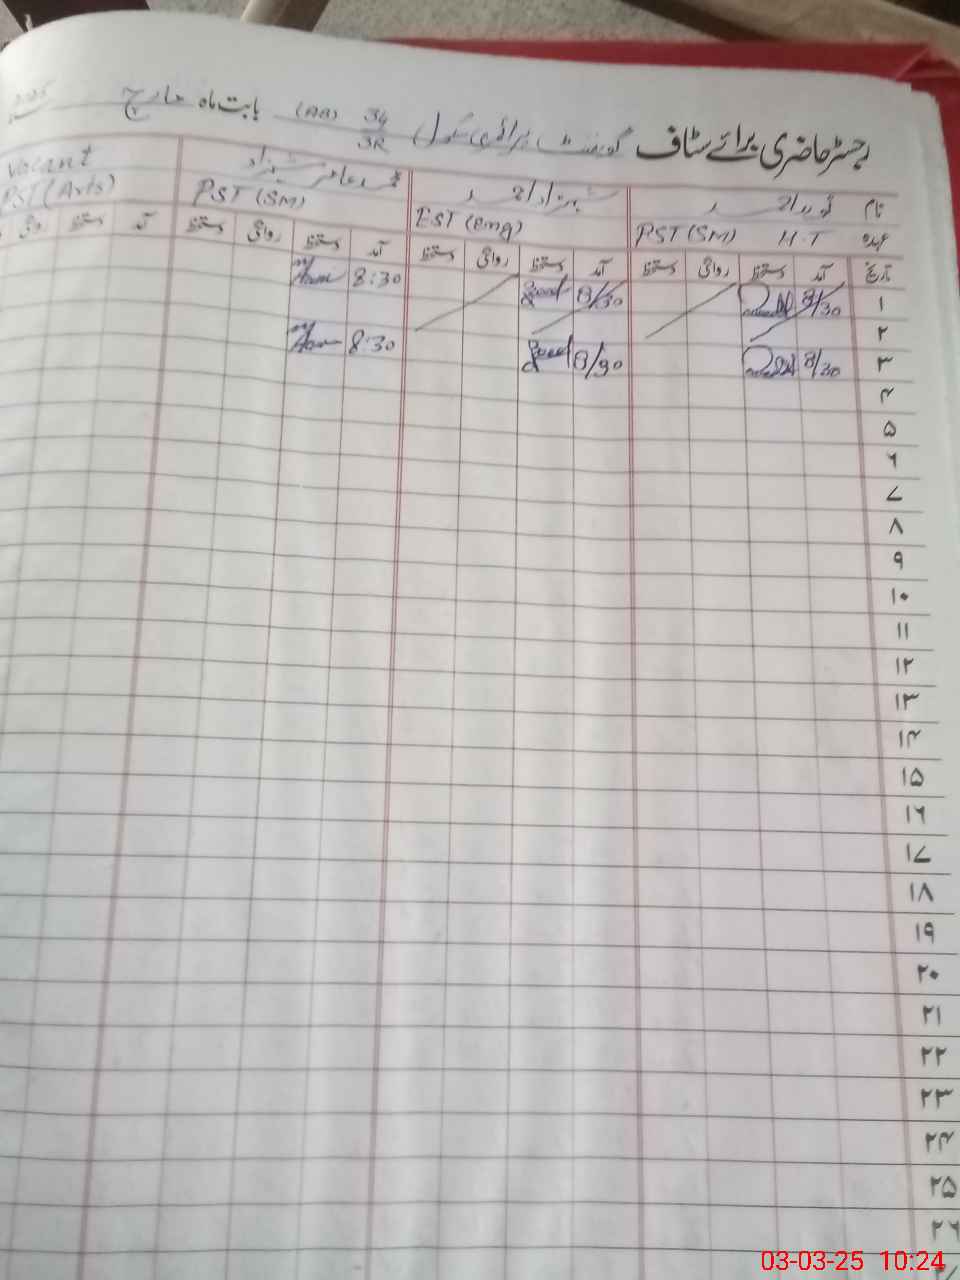 رجسٹر حاضری برائے سٹاف گورنمنٹ پرائمری سکول 34/3R (AB) بابت ماہ مارچ 2025
نام
عہدہ PST (SM) H.T EST (Eng) PST (SM) Vacant PST (Arts)
تاریخ آمد دستخط روانگی دستخط آمد دستخط روانگی دستخط آمد دستخط روانگی دستخط آمد دستخط روانگی
۱ 8/30 8/30 8:30
۲
۳ 8/30 8/30 8:30
۴
۵
۶
۷
۸
۹
۱۰
۱۱
۱۲
۱۳
۱۴
۱۵
۱۶
۱۷
۱۸
۱۹
۲۰
۲۱
۲۲
۲۳
۲۴
۲۵
۲۶
03-03-25 10:24